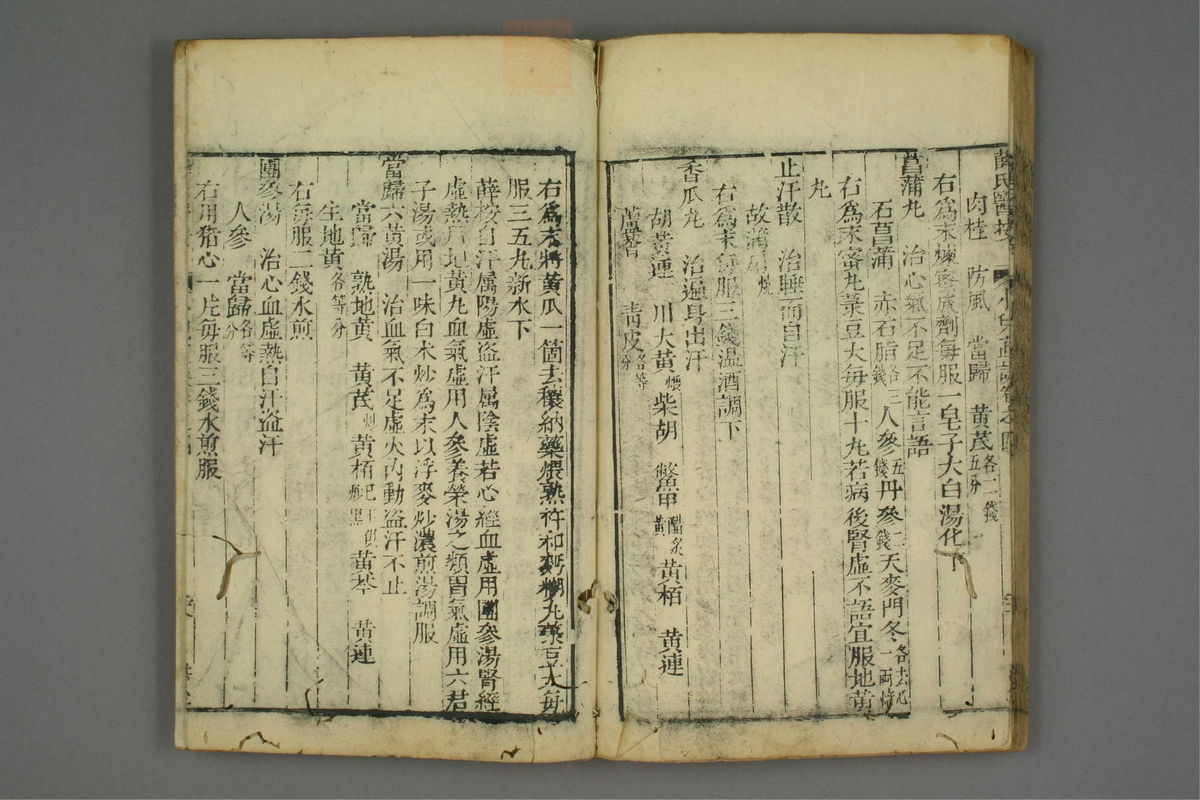 薛氏醫按 小兒直訣卷之四
肉桂 防風 當歸 黃芪各二錢五分
右爲末煉蜜成劑每服一皂子大白湯化下
菖蒲丸 治心氣不足不能言語
石菖蒲 赤石脂各三錢 人參五錢 丹參二錢 天麥門冬各去心一兩焙
右爲末蜜丸菉豆大每服十丸若病後腎虛不語宜服地黃
丸
止汗散 治睡而自汗
故蒲扇燒
右爲末每服三錢温酒調下
香瓜丸 治遍身出汗
胡黃連 川大黃煨 柴胡 鱉甲醋炙黃 黃栢 黃連
蘆薈 靑皮各等分
右爲末將黃瓜一箇去穰納藥煨熟杵和麪糊丸菉豆大每
服三五丸新水下
薛按自汗屬陽虛盗汗屬陰虛若心經血虛用團參湯腎經
虛熱用地黃丸血氣虛用人參養榮湯之類胃氣虛用六君
子湯或用一味白术炒爲末以浮麥炒濃煎湯調服
當歸六黃湯 治血氣不足虛火內動盗汗不止
當歸 熟地黃 黃芪炒 黃栢炒黑 黃芩 黃連
生地黃各等分
右每服二錢水煎
團參湯 治心血虛熱自汗盗汗
人參 當歸各等分
右用猪心一片每服三錢水煎服